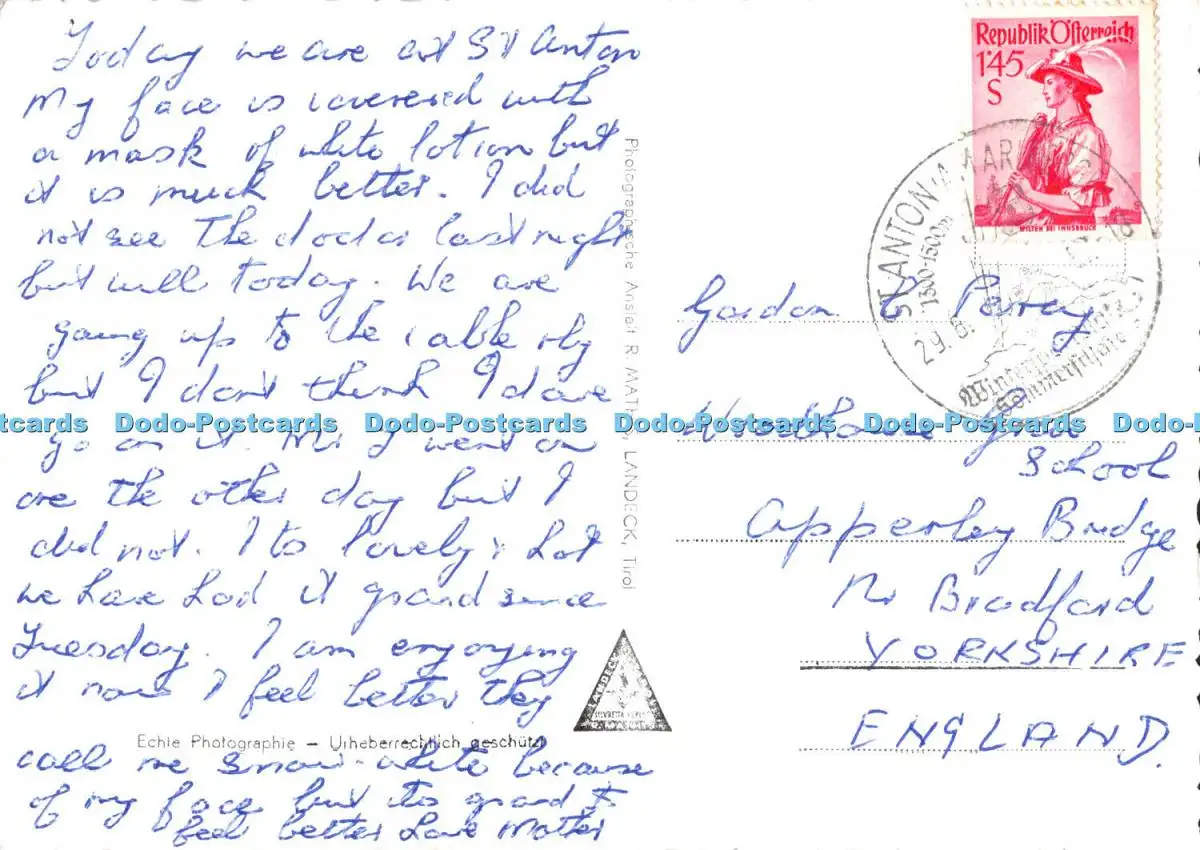 Today we are at St Anton
My face is covered with
a mask of white lotion but
it is much better. I did
not see The doctor last night
but will today. We are
going up to the cable rly
but I don't think I dare
go on it. Mr J went on
one the other day but I
did not. Its lovely & hot
we have had it grand since
Tuesday. I am enjoying
it now I feel better they
call me snow-white because
of my face but its grand to
feel better Love Mother
Echte Photographie – Urheberrechtlich geschützt
Photographische Anstalt R. MATHIS, LANDECK, Tirol
LANDECK
Republik Österreich
1'45
S
WILTEN BEI INNSBRUCK
ST. ANTON A. ARLBERG
1300-1500m
29. 8.
Gordon C Parray
Woodhouse Grove
School
Apperley Bridge
Nr Bradford
YORKSHIRE
ENGLAND.
Dodo-Postcards Dodo-Postcards Dodo-Postcards Dodo-Postcards Dodo-Postcards